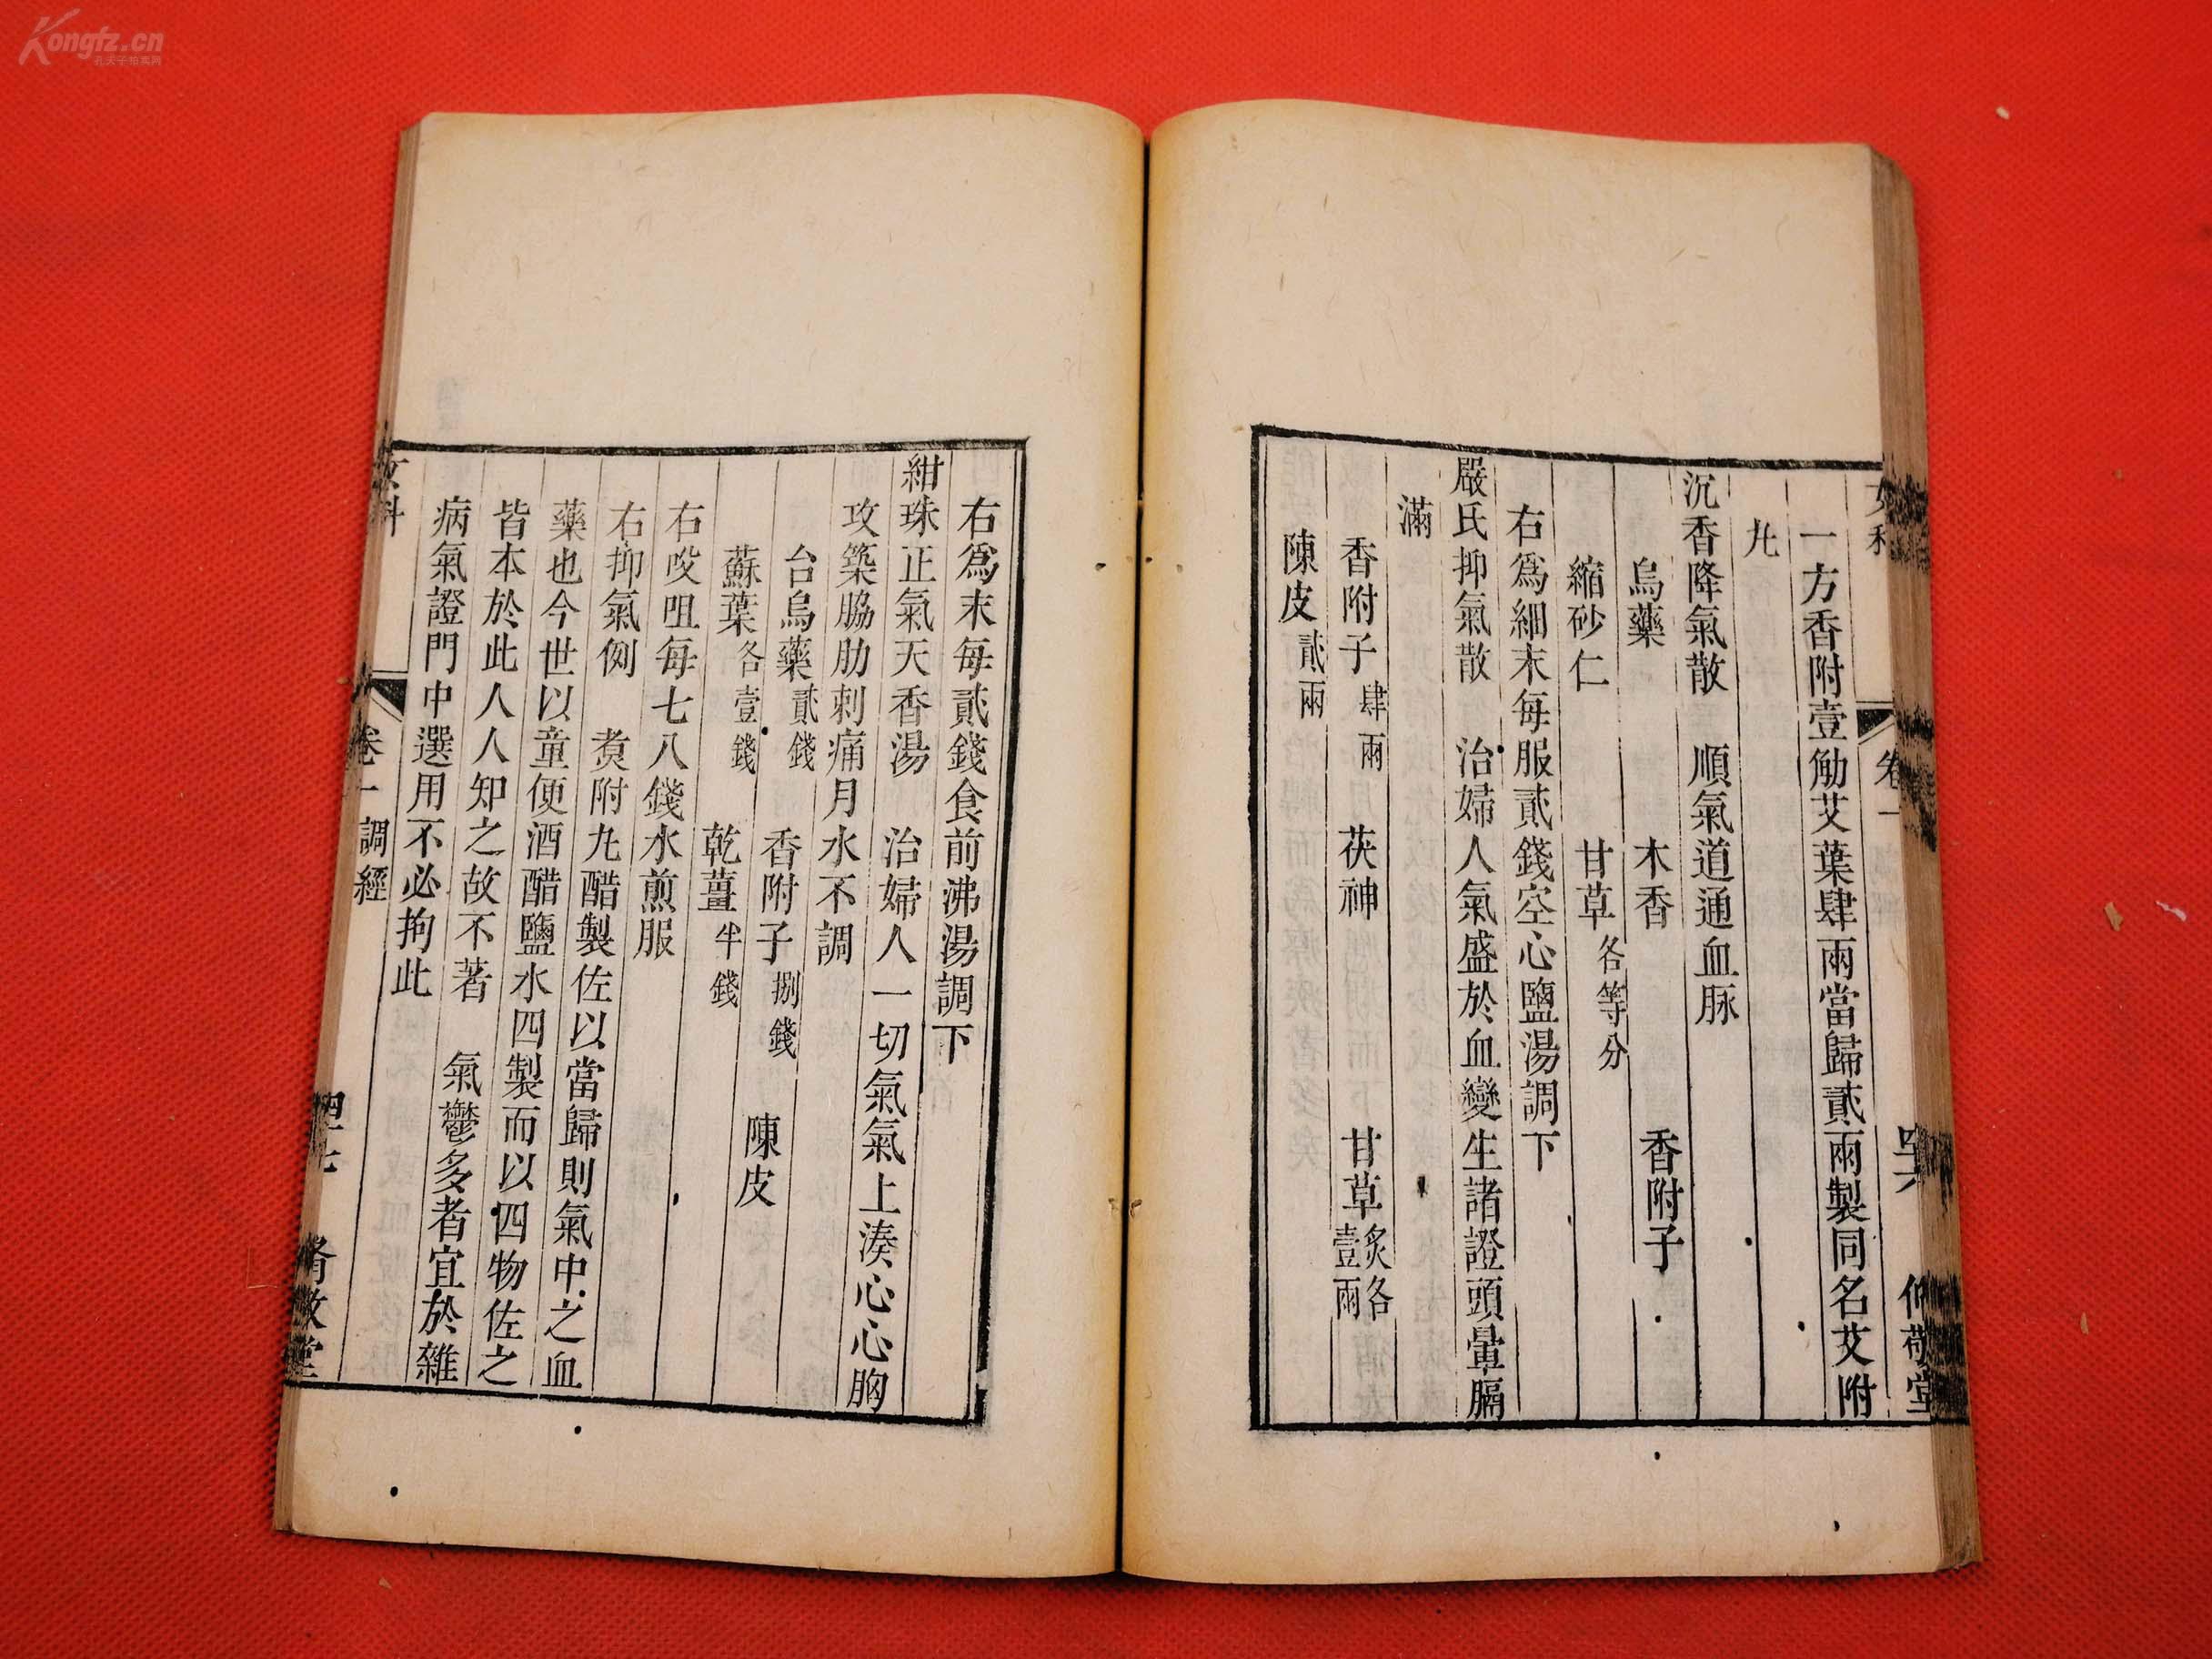 Kongfz.cn
孔夫子拍卖网
女科
卷一
四六
脩敬堂
一方香附壹觔艾葉肆兩當歸貳兩製同名艾附
九
沉香降氣散 順氣道通血脉
烏藥 木香 香附子
縮砂仁 甘草各等分
右爲細末每服貳錢空心鹽湯調下
嚴氏抑氣散 治婦人氣盛於血變生諸證頭暈膈
滿
香附子肆兩 茯神 甘草炙各壹兩
陳皮貳兩
右爲末每貳錢食前沸湯調下
紺珠正氣天香湯 治婦人一切氣氣上湊心心胸
攻築脇肋刺痛月水不調
台烏藥貳錢 香附子捌錢 陳皮
蘇葉各壹錢 乾薑半錢
右㕮咀每七八錢水煎服
右抑氣例 煑附九醋製佐以當歸則氣中之血
藥也今世以童便酒醋鹽水四製而以四物佐之
皆本於此人人知之故不著 氣鬱多者宜於雜
病氣證門中選用不必拘此
女科
卷一調經
四七
脩敬堂